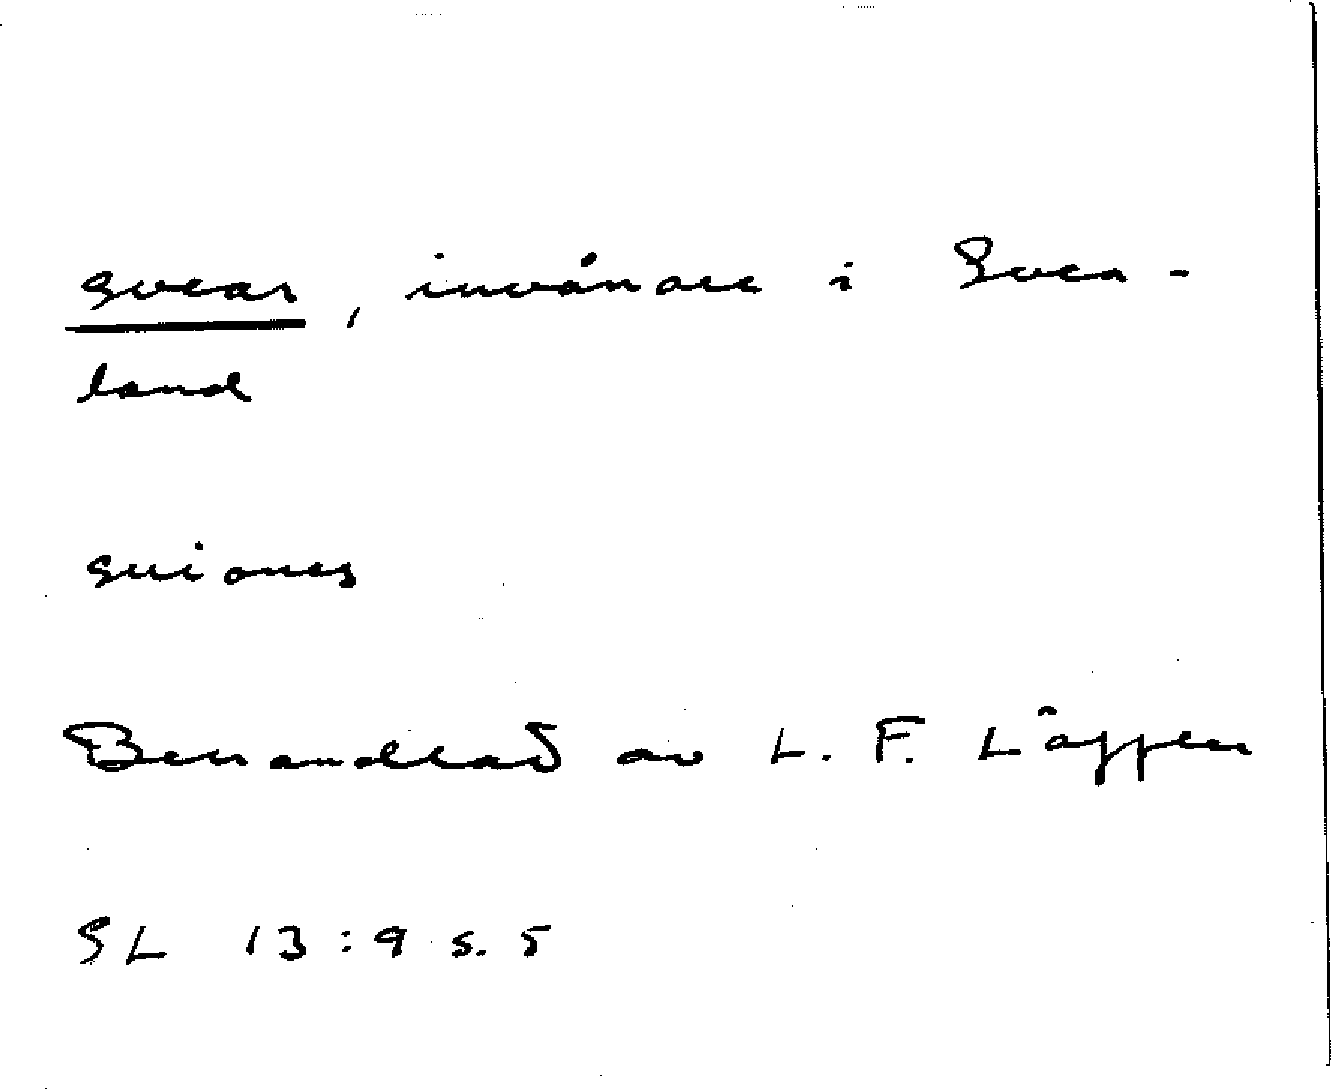 svear, invånare i Svea-
land
suiones
Behandlad av L. F. Läffler
SL 13:9 s. 5